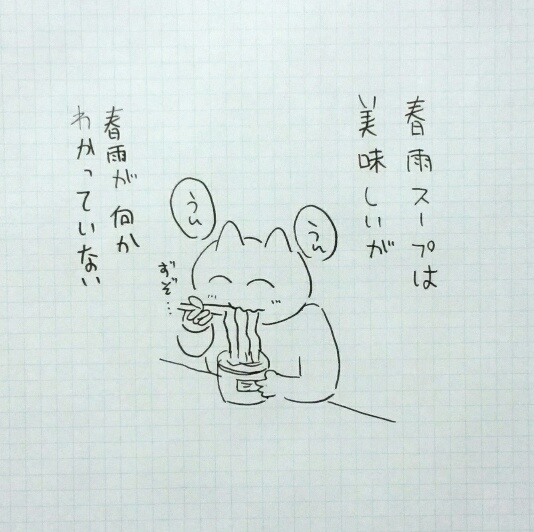 春雨スープは
美味しいが
うん
うん
ずぞ…
春雨が何か
わかっていない